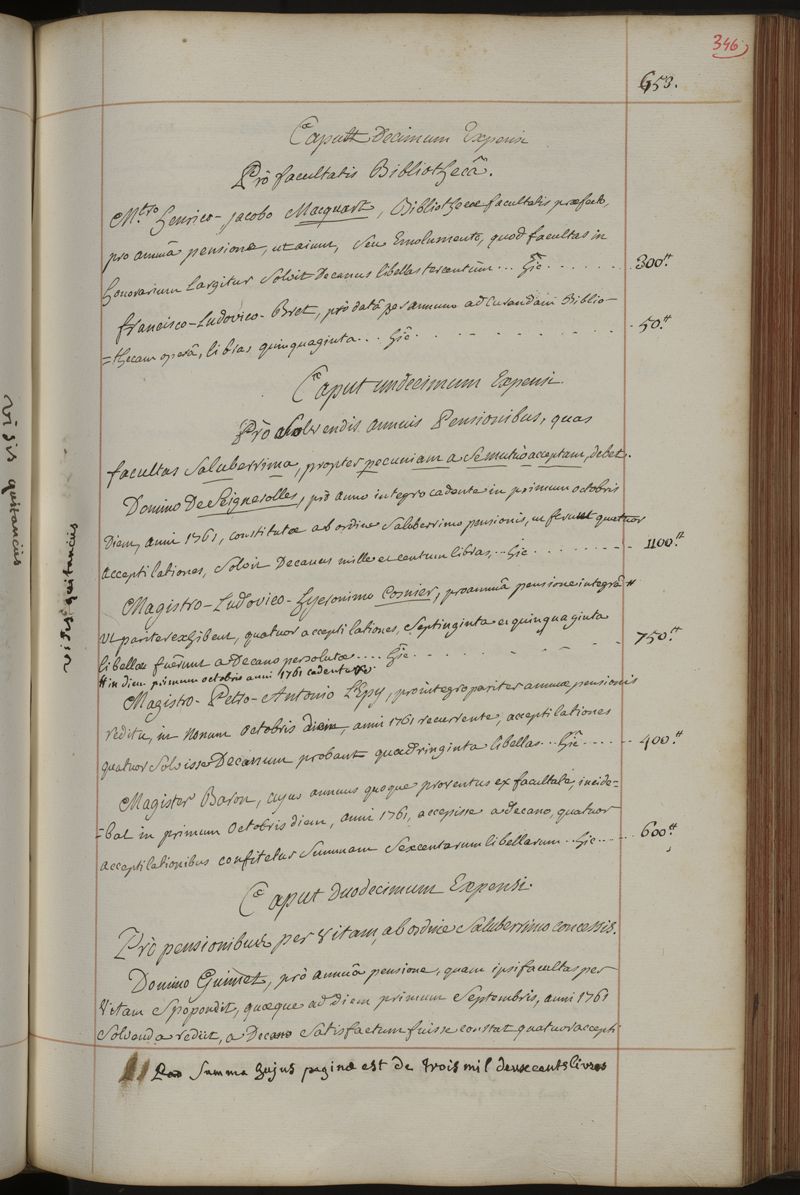 346
653.
Caput Decimum Expensi
Pro facultatis Bibliothecâ.
M.tro henrico-jacobo Macquart, Bibliothecae facultatis praefecto,
pro annuâ pensione, ut aiunt, seu Emolumento, quod facultas in
honorarium Largitur Solvit Decanus libellas tercentum... hic....... 300.tt
francisco-Ludovico-Bret, pro datâ per annum ad Curandam Biblio-
=thecam operâ, libras quinquaginta... hic....... 50.tt
Caput undecimum Expensi
Pro absolvendis annuis Pensionibus, quas
facultas Saluberrima, propter pecuniam a Se mutuò acceptam, debet.
Domino De Seignerolles, pro anno integro cadente in primum octobris
Diem, anni 1761, constitutae ab ordine Saluberrimo pensionis, ut ferunt quatuor
acceptilationes, Solvit Decanus mille et centum libras,... hic....... 1100.tt
Magistro-Ludovico-hyeronimo Cosnier, pro annuâ pensione integrâ #
Ut pariter exhibent, quatuor acceptilationes, Septinginta et quinquaginta
libellae fuerunt a Decano persolutae.... hic....... 750.tt
# in diem primum octobris anni 1761 cadente
Magistro-Petro-Antonio L'Epy, pro integro pariter annuae pensionis
reditu, in Nonum octobris diem, anni 1761 recurrente, acceptilationes
quatuor Solvisse Decanum probant quadringinta libellas... hic....... 400.tt
Magister Baron, cujus annuus quoque proventus ex facultate, incide=
=bat in primum Octobris diem, anni 1761, accepisse a Decano, quatuor
acceptilationibus confitetur Summam Sexcentarum libellarum.. hic...... 600.tt
Caput Duodecimum Expensi.
Pro pensionibus per Vitam, ab ordine Saluberrimo concessis.
Domino Guimet, pro annuâ pensione, quam ipsi facultas per
Vitam Spopondit, quaeque ad diem primum Septembris, anni 1761
Solvenda rediit, a Decano Satisfactum fuisse constat quatuor accepti
Summa hujus paginae est de trois mil deux cents livres
visis quitanciis
visis quitanciis